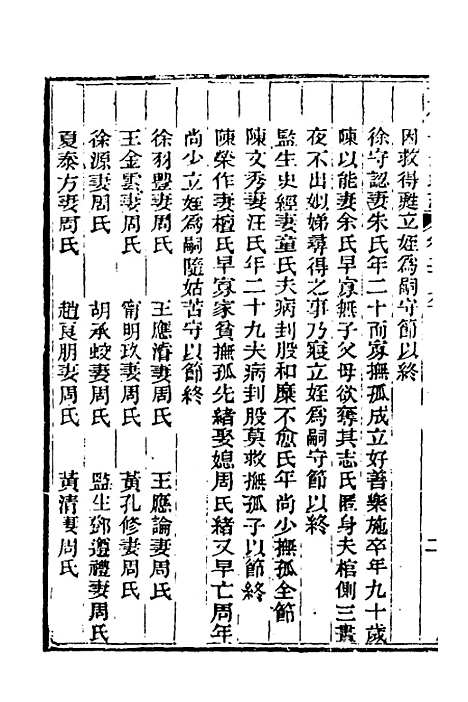 因救得甦立姪爲嗣守節以終
徐守認妻朱氏年二十而寡撫孤成立好善樂施卒年九十歲
陳以能妻余氏早寡撫子父母欲奪其志氏匿身夫棺側三晝
夜不出姒娣尋得之事乃寢立姪爲嗣守節以終
監生史經妻童氏夫病刲股和糜不愈氏年尚少撫孤全節
陳文秀妻汪氏年二十九夫病刲股莫救撫孤子以節終
陳榮作妻檀氏早寡家貧撫孤先緒娶媳周氏緒又早亡周年
尚少立姪爲嗣隨姑苦守以節終
徐羽豐妻周氏 王應濬妻周氏 王應論妻周氏
王金雲妻周氏 甯明玖妻周氏 黃孔修妻周氏
徐源妻周氏 胡承蛟妻周氏 監生鄧遵禮妻周氏
夏泰方妻周氏 趙良朋妻周氏 黃清妻周氏